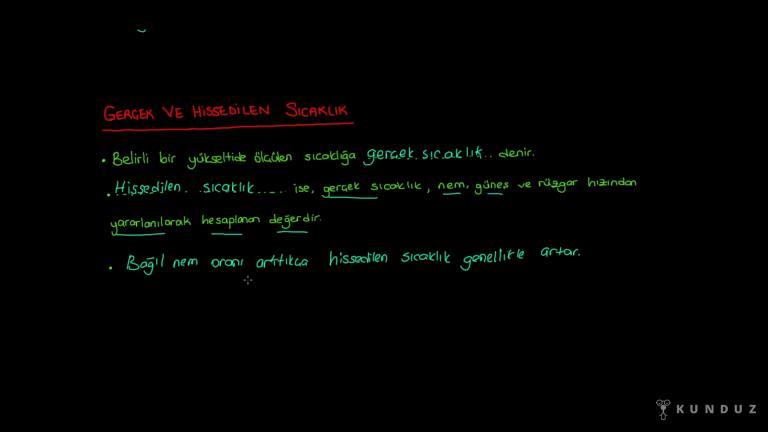 GERÇEK VE HİSSEDİLEN SICAKLIK
• Belirli bir yükseltide ölçülen sıcaklığa gerçek.sıcaklık.. denir.
• Hissedilen. .sıcaklık.... ise, gerçek sıcaklık, nem, güneş ve rüzgar hızından
yararlanılarak hesaplanan değerdir.
• Bağıl nem oranı arttıkça hissedilen sıcaklık genellikle artar.
KUNDUZ